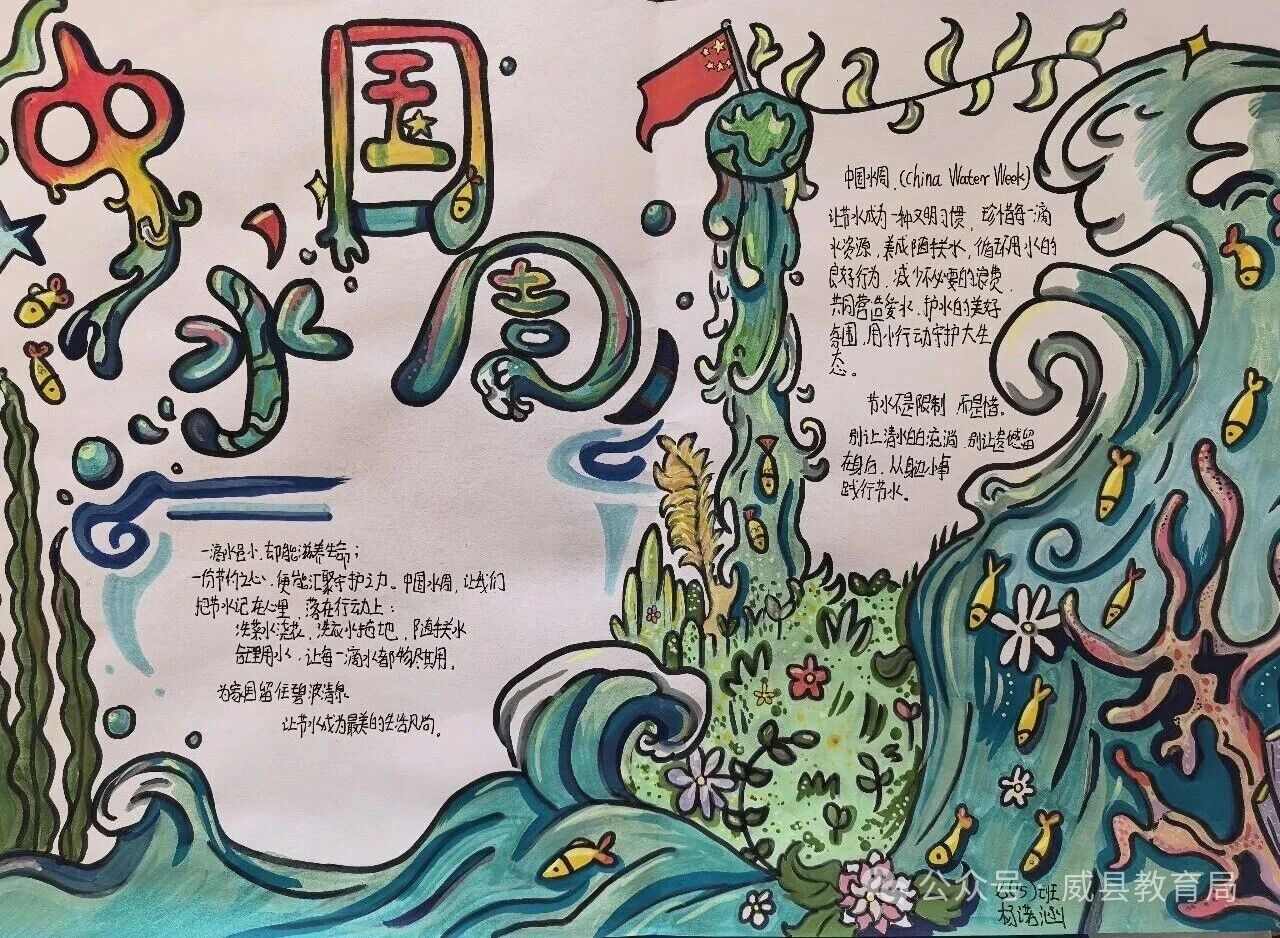 中国
水周
一滴水虽小,却能滋养生命;
一份节约之心,便能汇聚守护之力。中国水周,让我们
把节水记在心里,落在行动上:
洗菜水浇花、洗衣水拖地,随手关水
合理用水,让每一滴水都物尽其用。
为家园留住碧波清泉
让节水成为最美的生活风尚。
中国水周,(China Water Week)
让节水成为一种文明习惯,珍惜每一滴
水资源,养成随手关水,循环用水的
良好行为,减少不必要的浪费,
共同营造爱水、护水的美好
氛围,用小行动守护大生
态。
节水不是限制,而是惜。
别让清水白白流淌,别让遗憾留
在身后,从身边小事
践行节水。
(5)班
杨诺涵
公众号·威县教育局